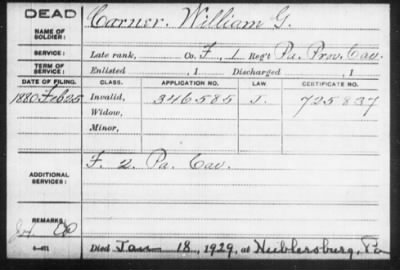 DEAD
NAME OF SOLDIER: Carner, William G.
SERVICE: Late rank, Co. F, 1 Reg't Pa. Prov. Cav.
TERM OF SERVICE: Enlisted , 1 Discharged , 1
DATE OF FILING. CLASS. APPLICATION NO. LAW. CERTIFICATE NO.
1880 Feb 25 Invalid, 346585 J. 725837
Widow,
Minor,
ADDITIONAL SERVICES: F. 2 Pa. Cav.
REMARKS:
Died Jan 18, 1929, at Hublersburg, Pa